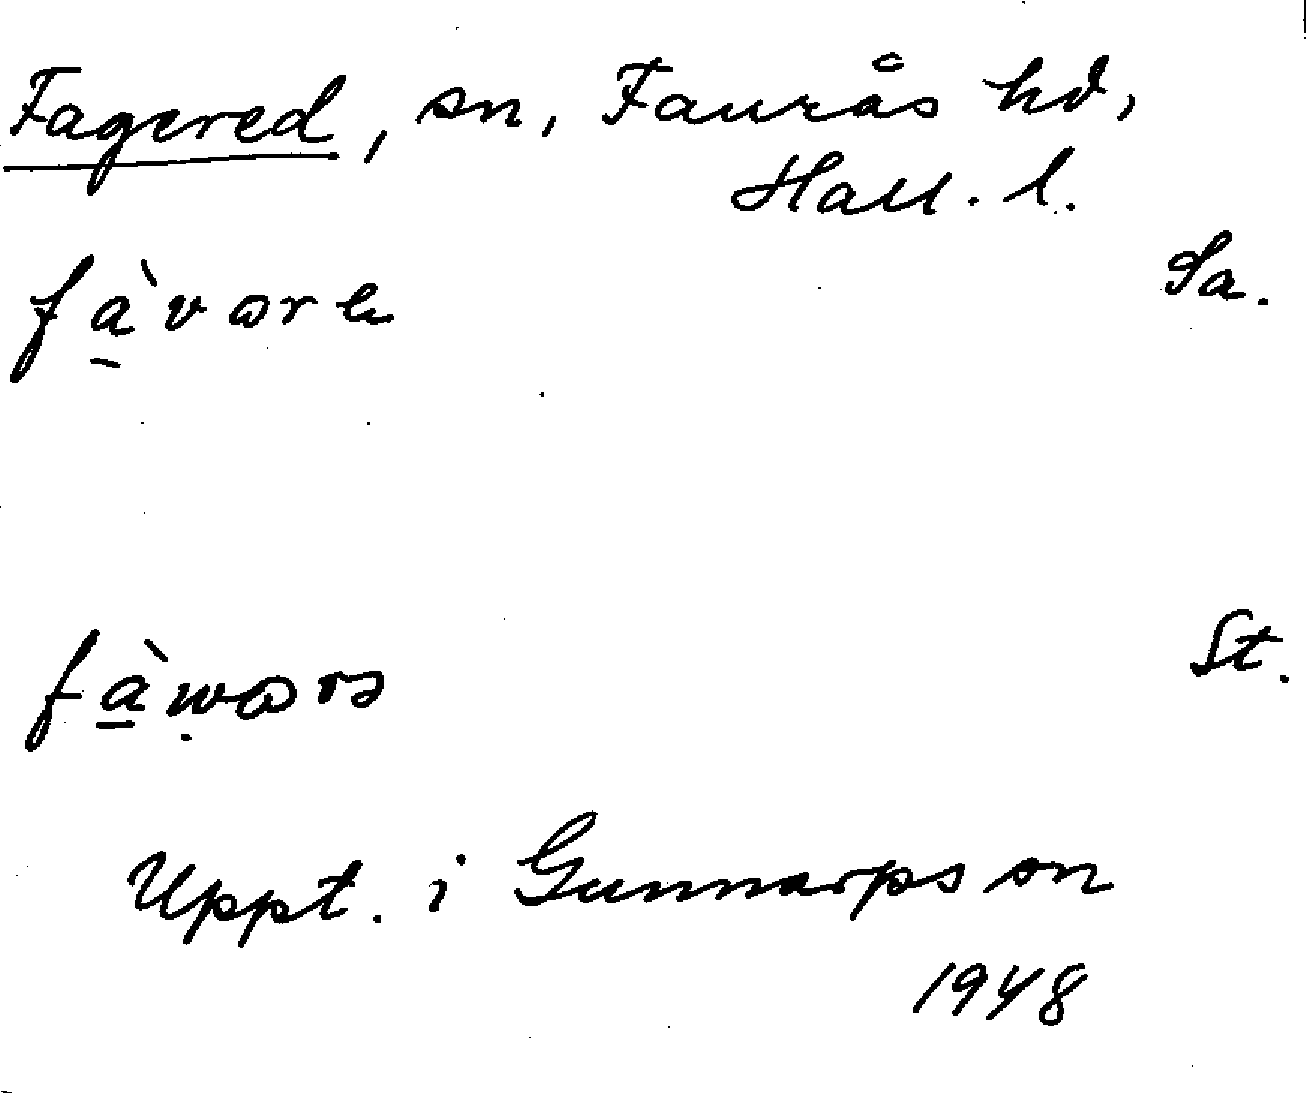 Fagered, sn, Faurås hd,
Hall. l.
Sa.
St.
Uppt. i Gunnarps sn
1948